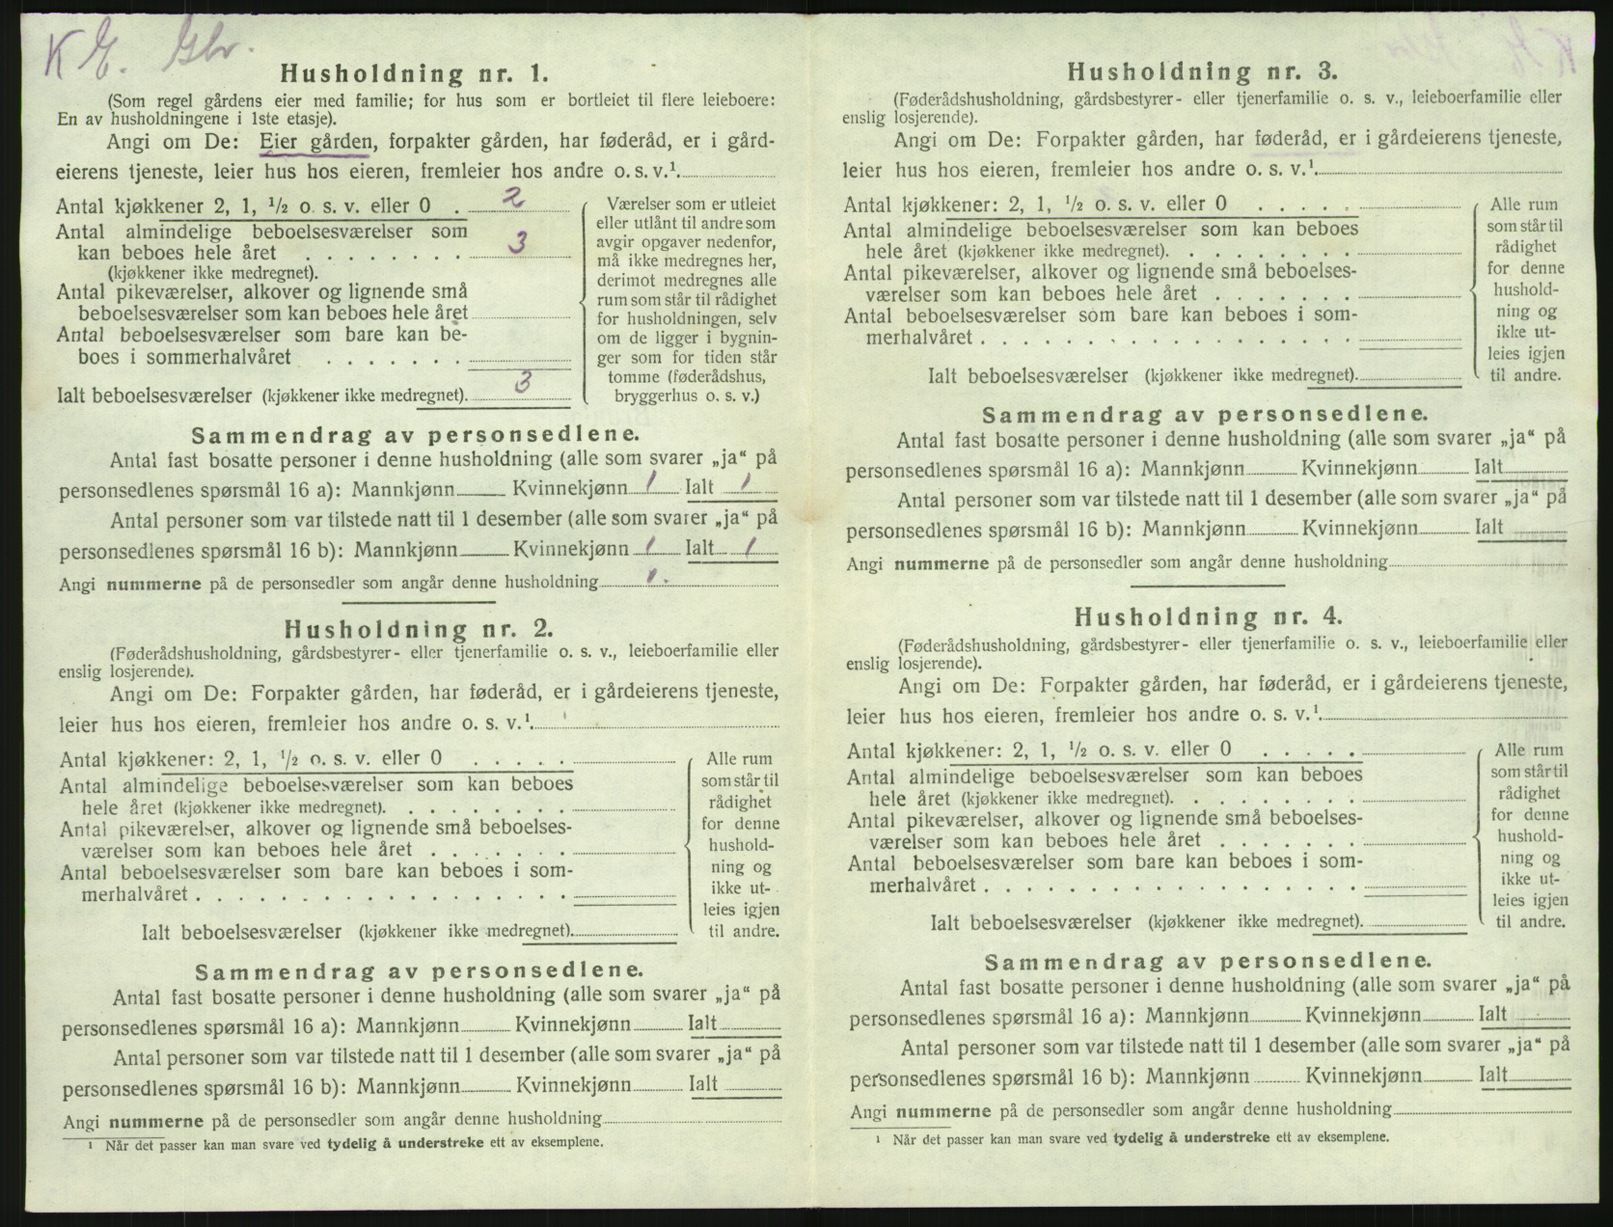 K E. Gbr.
Husholdning nr. 1.
(Som regel gårdens eier med familie; for hus som er bortleiet til flere leieboere:
En av husholdningene i 1ste etasje).
Angi om De: Eier gården, forpakter gården, har føderåd, er i gård-
eierens tjeneste, leier hus hos eieren, fremleier hos andre o. s. v.¹
Antal kjøkkener 2, 1, ½ o. s. v. eller 0 . 2
Antal almindelige beboelsesværelser som
kan beboes hele året . . . . . . . . 3
(kjøkkener ikke medregnet).
Antal pikeværelser, alkover og lignende små
beboelsesværelser som kan beboes hele året
Antal beboelsesværelser som bare kan be-
boes i sommerhalvåret . . . . . . .
Ialt beboelsesværelser (kjøkkener ikke medregnet). 3
Værelser som er utleiet
eller utlånt til andre som
avgir opgaver nedenfor,
må ikke medregnes her,
derimot medregnes alle
rum som står til rådighet
for husholdningen, selv
om de ligger i bygnin-
ger som for tiden står
tomme (føderådshus,
bryggerhus o. s. v.)
Sammendrag av personsedlene.
Antal fast bosatte personer i denne husholdning (alle som svarer „ja“ på
personsedlenes spørsmål 16 a): Mannkjønn Kvinnekjønn 1 Ialt 1
Antal personer som var tilstede natt til 1 desember (alle som svarer „ja“ på
personsedlenes spørsmål 16 b): Mannkjønn Kvinnekjønn 1 Ialt 1
Angi nummerne på de personsedler som angår denne husholdning 1.
Husholdning nr. 2.
(Føderådshusholdning, gårdsbestyrer- eller tjenerfamilie o. s. v., leieboerfamilie eller
enslig losjerende).
Angi om De: Forpakter gården, har føderåd, er i gårdeierens tjeneste,
leier hus hos eieren, fremleier hos andre o. s. v.¹
Antal kjøkkener: 2, 1, ½ o. s. v. eller 0 . . . . .
Antal almindelige beboelsesværelser som kan beboes
hele året (kjøkkener ikke medregnet). . . . . . . . .
Antal pikeværelser, alkover og lignende små beboelses-
værelser som kan beboes hele året . . . . . . .
Antal beboelsesværelser som bare kan beboes i som-
merhalvåret . . . . . . . . . . . . . . . . . . .
Ialt beboelsesværelser (kjøkkener ikke medregnet).
Alle rum
som står til
rådighet
for denne
hushold-
ning og
ikke ut-
leies igjen
til andre.
Sammendrag av personsedlene.
Antal fast bosatte personer i denne husholdning (alle som svarer „ja“ på
personsedlenes spørsmål 16 a): Mannkjønn Kvinnekjønn Ialt
Antal personer som var tilstede natt til 1 desember (alle som svarer „ja“ på
personsedlenes spørsmål 16 b): Mannkjønn Kvinnekjønn Ialt
Angi nummerne på de personsedler som angår denne husholdning
¹ Når det passer kan man svare ved tydelig å understreke ett av eksemplene.
Husholdning nr. 3.
(Føderådshusholdning, gårdsbestyrer- eller tjenerfamilie o. s. v., leieboerfamilie eller
enslig losjerende).
Angi om De: Forpakter gården, har føderåd, er i gårdeierens tjeneste,
leier hus hos eieren, fremleier hos andre o. s. v.¹
Antal kjøkkener: 2, 1, ½ o. s. v. eller 0 . . . . .
Antal almindelige beboelsesværelser som kan beboes
hele året (kjøkkener ikke medregnet). . . . . . . . .
Antal pikeværelser, alkover og lignende små beboelses-
værelser som kan beboes hele året . . . . . . .
Antal beboelsesværelser som bare kan beboes i som-
merhalvåret . . . . . . . . . . . . . . . . . . .
Ialt beboelsesværelser (kjøkkener ikke medregnet).
Alle rum
som står til
rådighet
for denne
hushold-
ning og
ikke ut-
leies igjen
til andre.
Sammendrag av personsedlene.
Antal fast bosatte personer i denne husholdning (alle som svarer „ja“ på
personsedlenes spørsmål 16 a): Mannkjønn Kvinnekjønn Ialt
Antal personer som var tilstede natt til 1 desember (alle som svarer „ja“ på
personsedlenes spørsmål 16 b): Mannkjønn Kvinnekjønn Ialt
Angi nummerne på de personsedler som angår denne husholdning
Husholdning nr. 4.
(Føderådshusholdning, gårdsbestyrer- eller tjenerfamilie o. s. v., leieboerfamilie eller
enslig losjerende).
Angi om De: Forpakter gården, har føderåd, er i gårdeierens tjeneste,
leier hus hos eieren, fremleier hos andre o. s. v.¹
Antal kjøkkener: 2, 1, ½ o. s. v. eller 0 . . . . .
Antal almindelige beboelsesværelser som kan beboes
hele året (kjøkkener ikke medregnet). . . . . . . . .
Antal pikeværelser, alkover og lignende små beboelses-
værelser som kan beboes hele året . . . . . . .
Antal beboelsesværelser som bare kan beboes i som-
merhalvåret . . . . . . . . . . . . . . . . . . .
Ialt beboelsesværelser (kjøkkener ikke medregnet).
Alle rum
som står til
rådighet
for denne
hushold-
ning og
ikke ut-
leies igjen
til andre.
Sammendrag av personsedlene.
Antal fast bosatte personer i denne husholdning (alle som svarer „ja“ på
personsedlenes spørsmål 16 a): Mannkjønn Kvinnekjønn Ialt
Antal personer som var tilstede natt til 1 desember (alle som svarer „ja“ på
personsedlenes spørsmål 16 b): Mannkjønn Kvinnekjønn Ialt
Angi nummerne på de personsedler som angår denne husholdning
¹ Når det passer kan man svare ved tydelig å understreke ett av eksemplene.